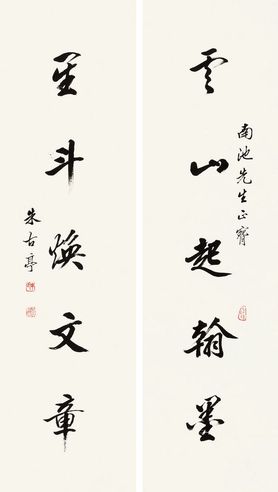 云山起翰墨
南池先生正寳
星斗焕文章
朱古亭